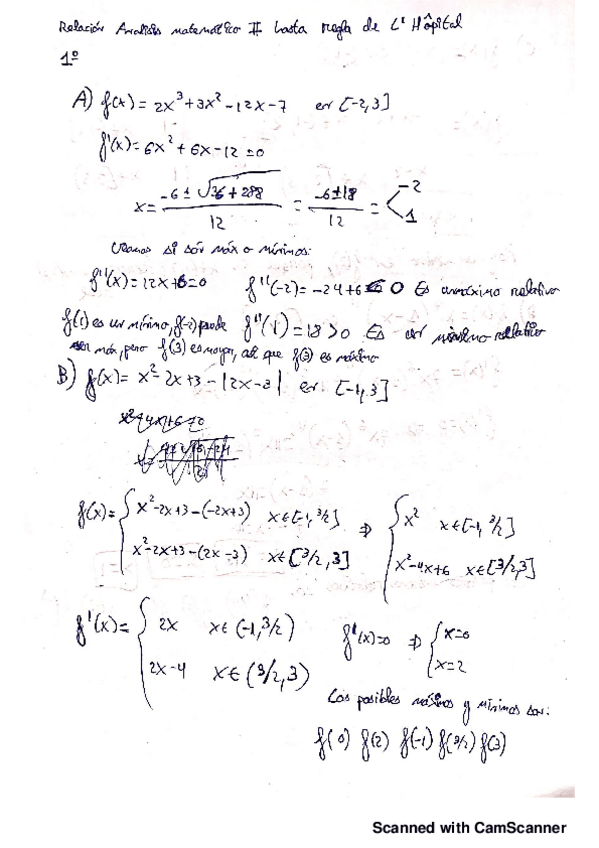 Relación Analisis matemático II hasta regla de L'Hôpital
1º
A) f(x) = 2x³+3x²-12x-7 en [-2,3]
f'(x) = 6x²+6x-12=0
x = (-6±√(36+288))/12 = (-6±18)/12 = < -2 1
Veamos si són máx o mínimos:
f''(x)=12x+6=0 f''(-2)=-24+6<0 Es un máximo relativo
f(1) es un mínimo, f(-2) puede f''(1)=18>0 Es un mínimo relativo
ser máx, pero f(3) es mayor, así que f(3) es máximo
B) f(x) = x²-2x+3-|2x-3| en [-1,3]
x²-4x+6=0
f(x)= { x²-2x+3-(-2x+3) x∈[-1,3/2] ⇒ { x² x∈[-1,3/2]
x²-2x+3-(2x-3) x∈[3/2,3] x²-4x+6 x∈[3/2,3]
f'(x)= { 2x x∈(-1,3/2) f'(x)=0 ⇒ { x=0
2x-4 x∈(3/2,3) x=2
Los posibles máximos y mínimos son:
f(0) f(2) f(-1) f(3/2) f(3)
Scanned with CamScanner